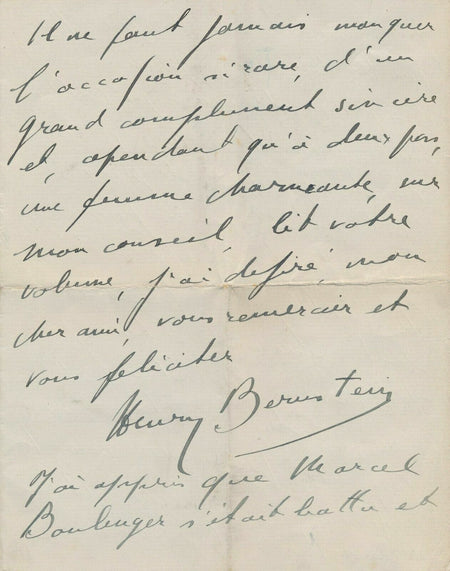 Il ne faut jamais manquer
l'occasion si rare, d'un
grand compliment sincère
et, cependant qu'à deux pas,
une femme charmante, sur
mon conseil, lit votre
volume, j'ai désiré, mon
cher ami, vous remercier et
vous féliciter
Henry Bernstein
J'ai appris que Marcel
Boulenger s'était battu et